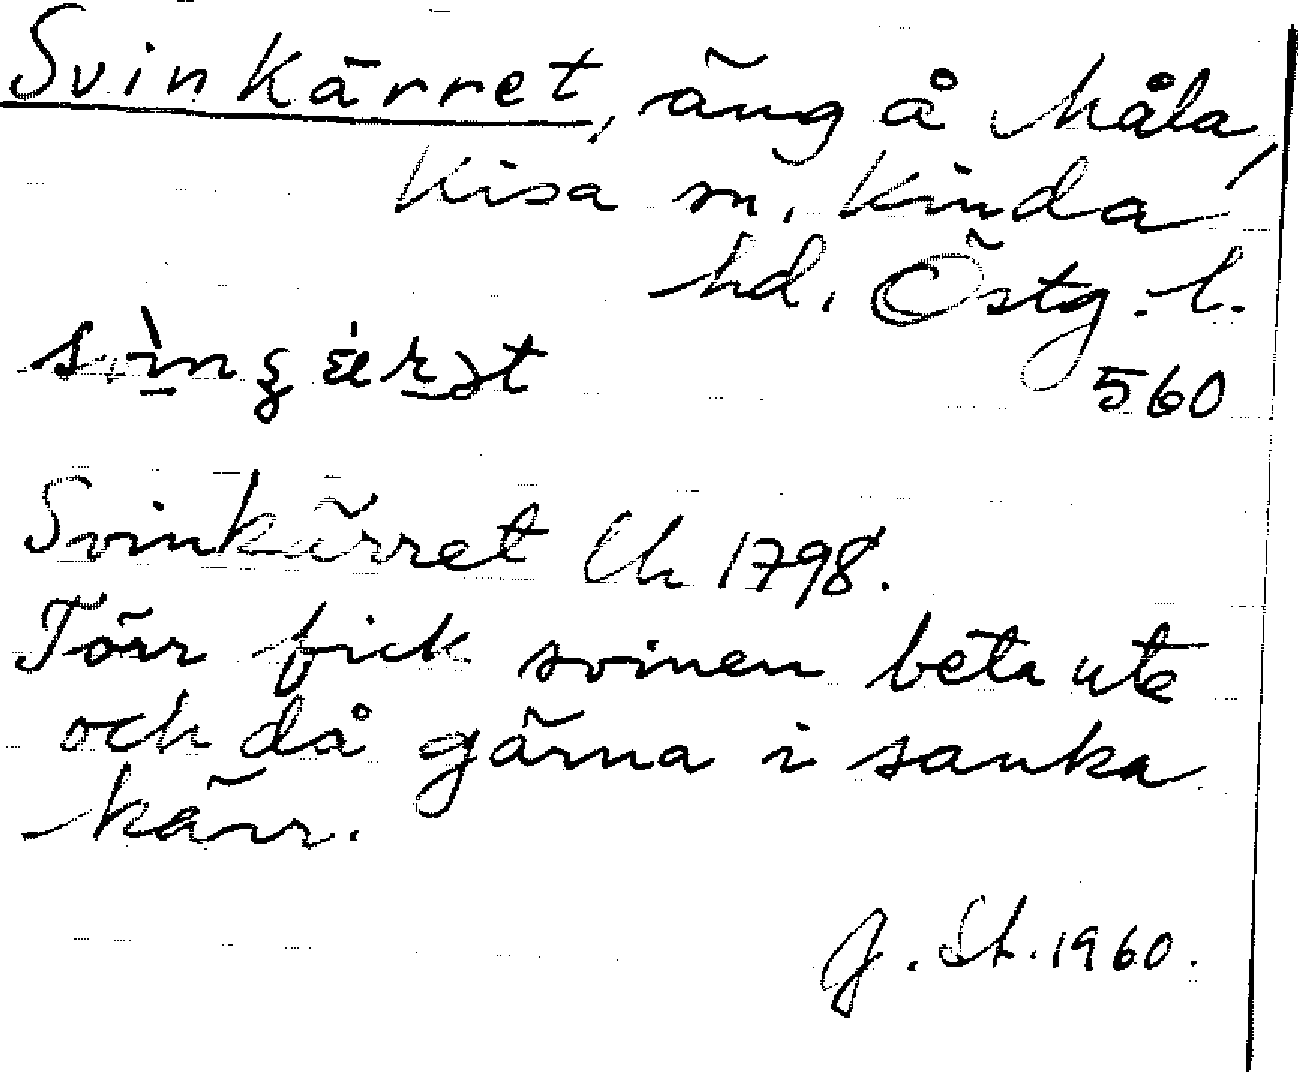 Svinkärret, äng å Måla,
Kisa sn, Kinda
hd. Östg. l.
560
Svinkärret Uh 1798.
Förr fick svinen beta ute
och då gärna i sanka
kärr.
J. St. 1960.